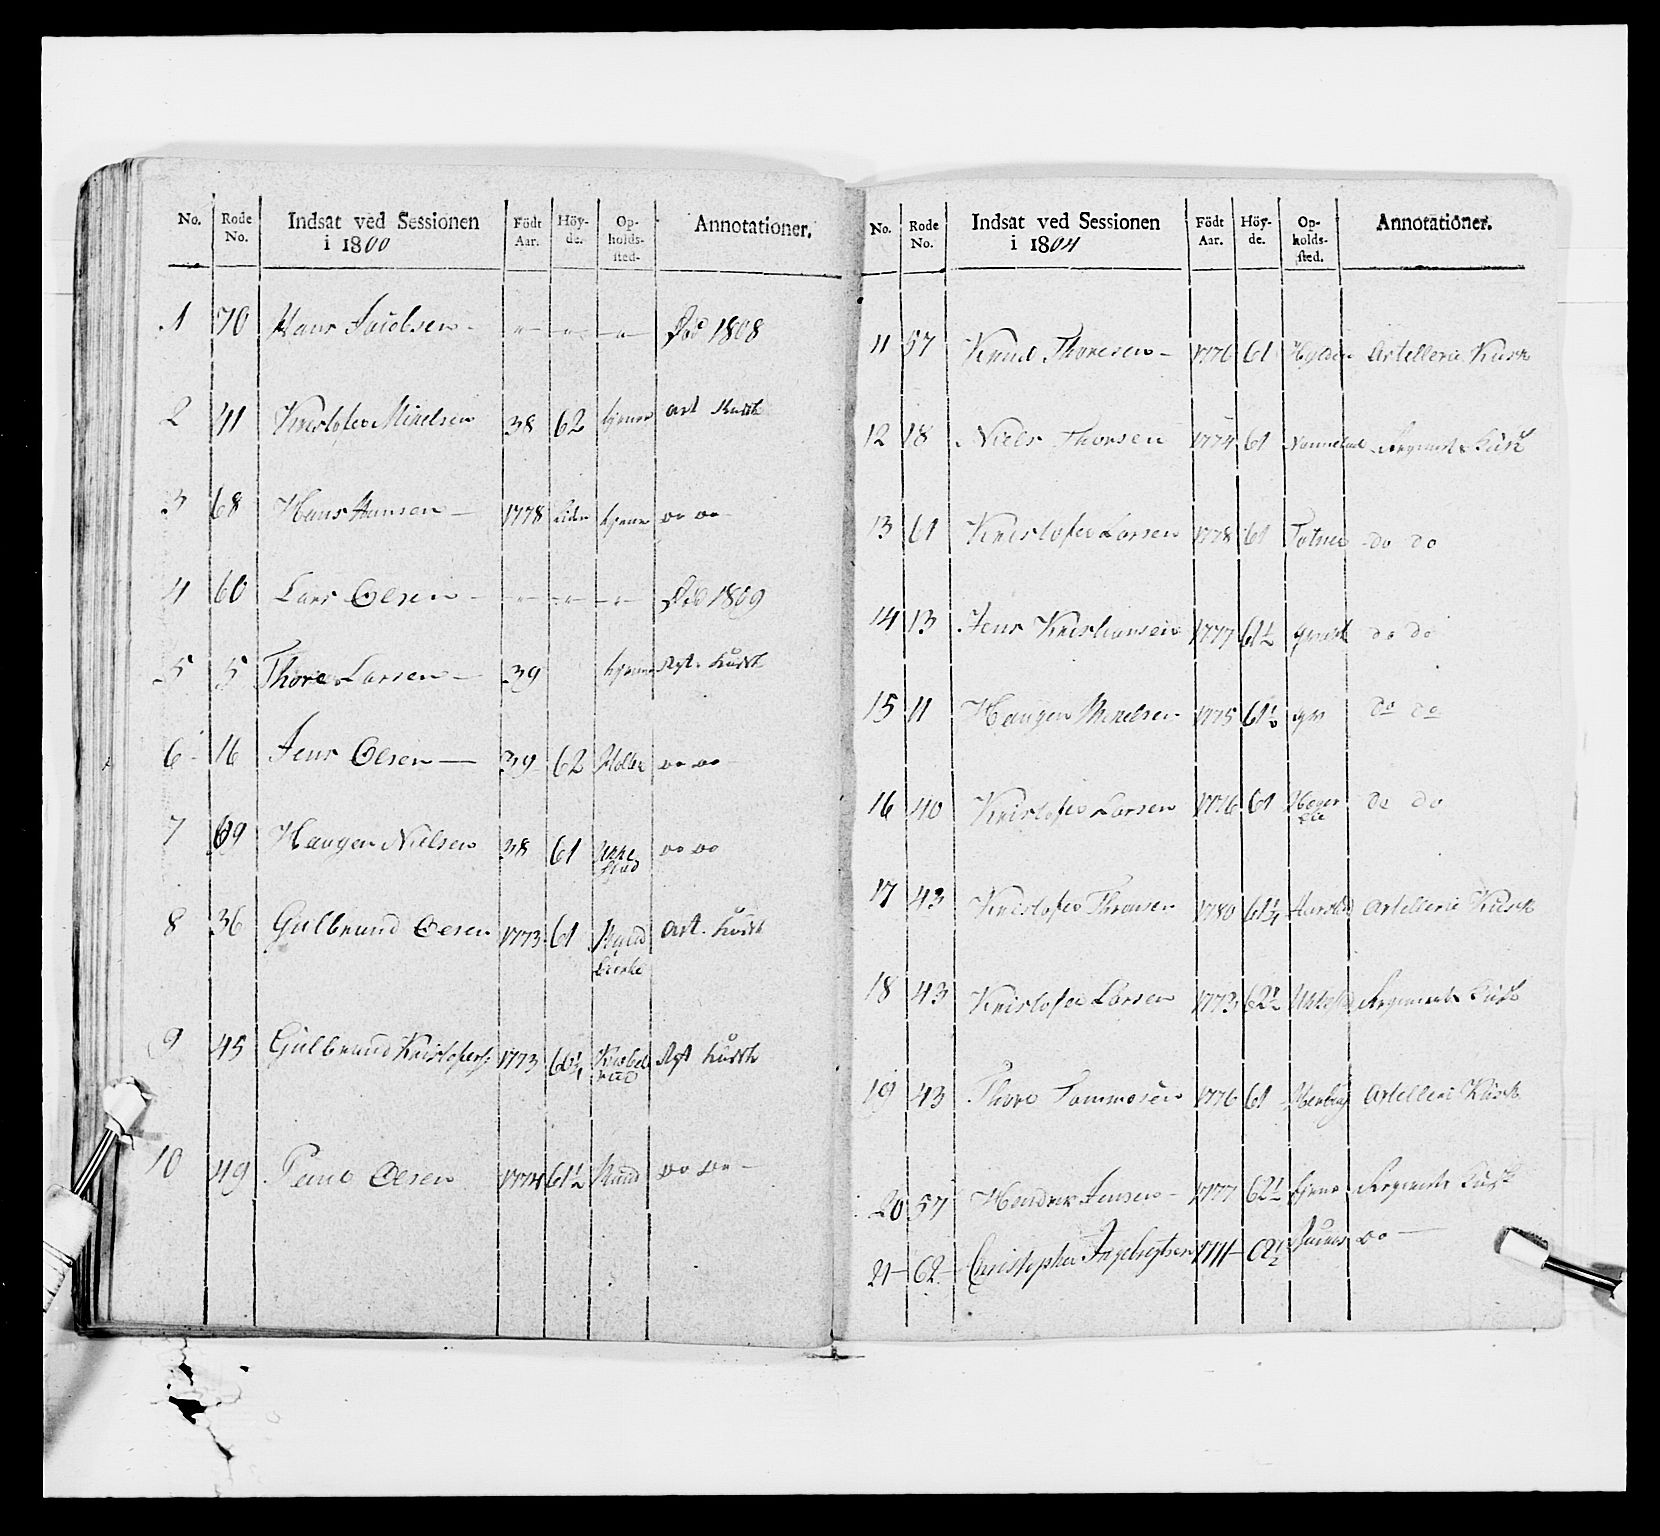 No. Rode No. Indsat ved Sessionen i 1800 Födt Aar. Höy-de. Op-holds-sted. Annotationer.
1 70 Hans Jacobsen - " " " Död 1808
2 41 Kristofer Mikelsen 38 62 hjeme Art Kusk
3 68 Hans Hansen - 1778 hjeme do do
4 60 Lars Olsen - " " " Död 1809
5 5 Thore Larsen - 39 hjeme Rgt. Kusk
6 16 Jens Olsen - 39 62 do do -
7 69 Haagen Nielsen 38 61 do do
8 36 Gulbrand Olsen 1773 61 Art. Kusk
9 45 Gulbrand Kristofers: 1773 60¼ Rgt Kusk
10 49 Olsen 1774 61½ Ruud do do -
No. Rode No. Indsat ved Sessionen i 1804 Födt Aar. Höy-de. Op-holds-sted. Annotationer.
11 57 Knud Thoresen - 1776 61 Artelleri Kusk
12 18 Niels Thorsen 1774 61 Nannestad Regiments Kusk
13 61 Kristofer Larsen 1778 61 do do
14 13 Jens Kristiansen 1777 61½ do do
15 11 Haagen Mikelsen 1775 61½ do do
16 40 Kristofer Larsen 1776 61 do do
17 43 Kristofer Thronsen 1780 61¼ Artelleri Kusk
18 43 Kristofer Larsen 1773 62½ Regiments Kusk
19 43 Thore Tommesen 1776 61 Artelleri Kusk
20 57 Hendrik Jensen - 1777 62½ hjeme Regiments Kusk
21 - 62 - Christopher Ingebrigtsen 62½ do -